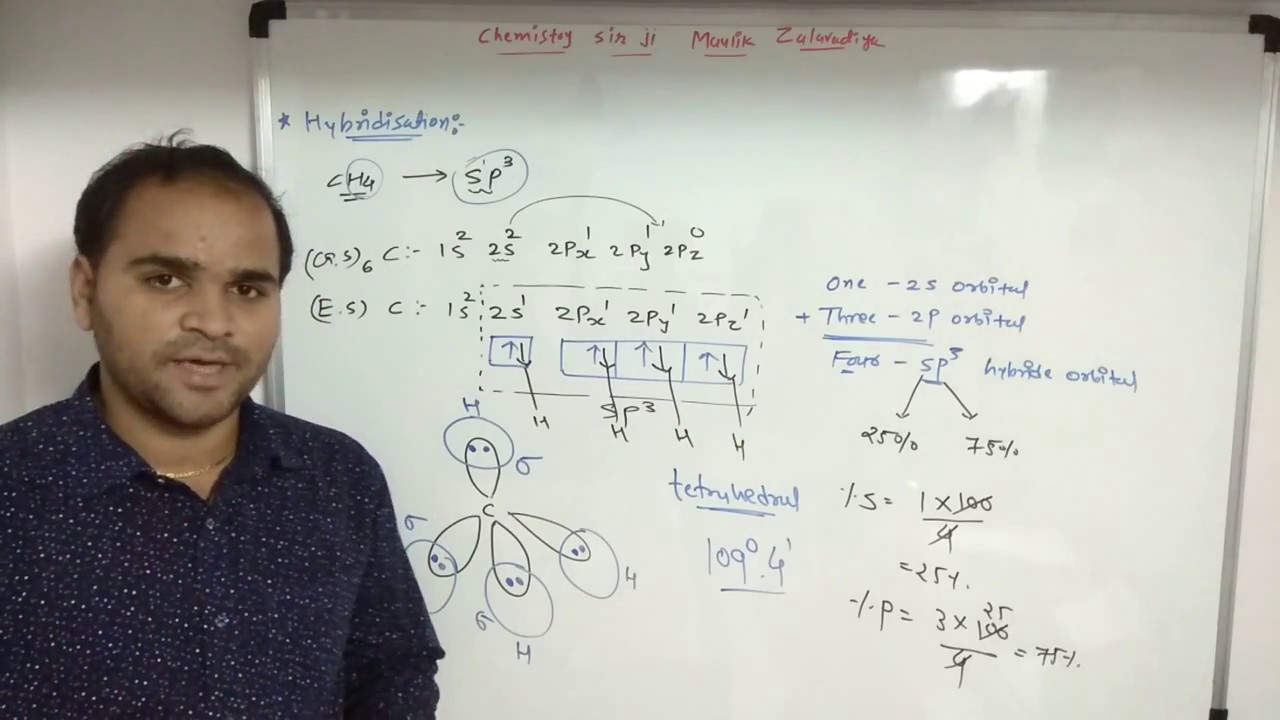 Chemistry sir ji Maulik Zalavadiya
* Hybridisation:-
CH4 → sp³
(G.S) ₆C:- 1s² 2s² 2Px¹ 2Py¹ 2Pz⁰
(E.S) C:- 1s² 2s¹ 2Px¹ 2Py¹ 2Pz¹
↑↓ ↑↓ ↑↓ ↑↓
sp³
H H H H
One - 2s orbital
+ Three - 2p orbital
Four - sp³ hybride orbital
25% 75%
H
σ
C
σ
σ
H
H
tetrahedral
109°.4'
%s = 1 × 100
4
= 25%.
%p = 3 × 100 25
4
= 75%.